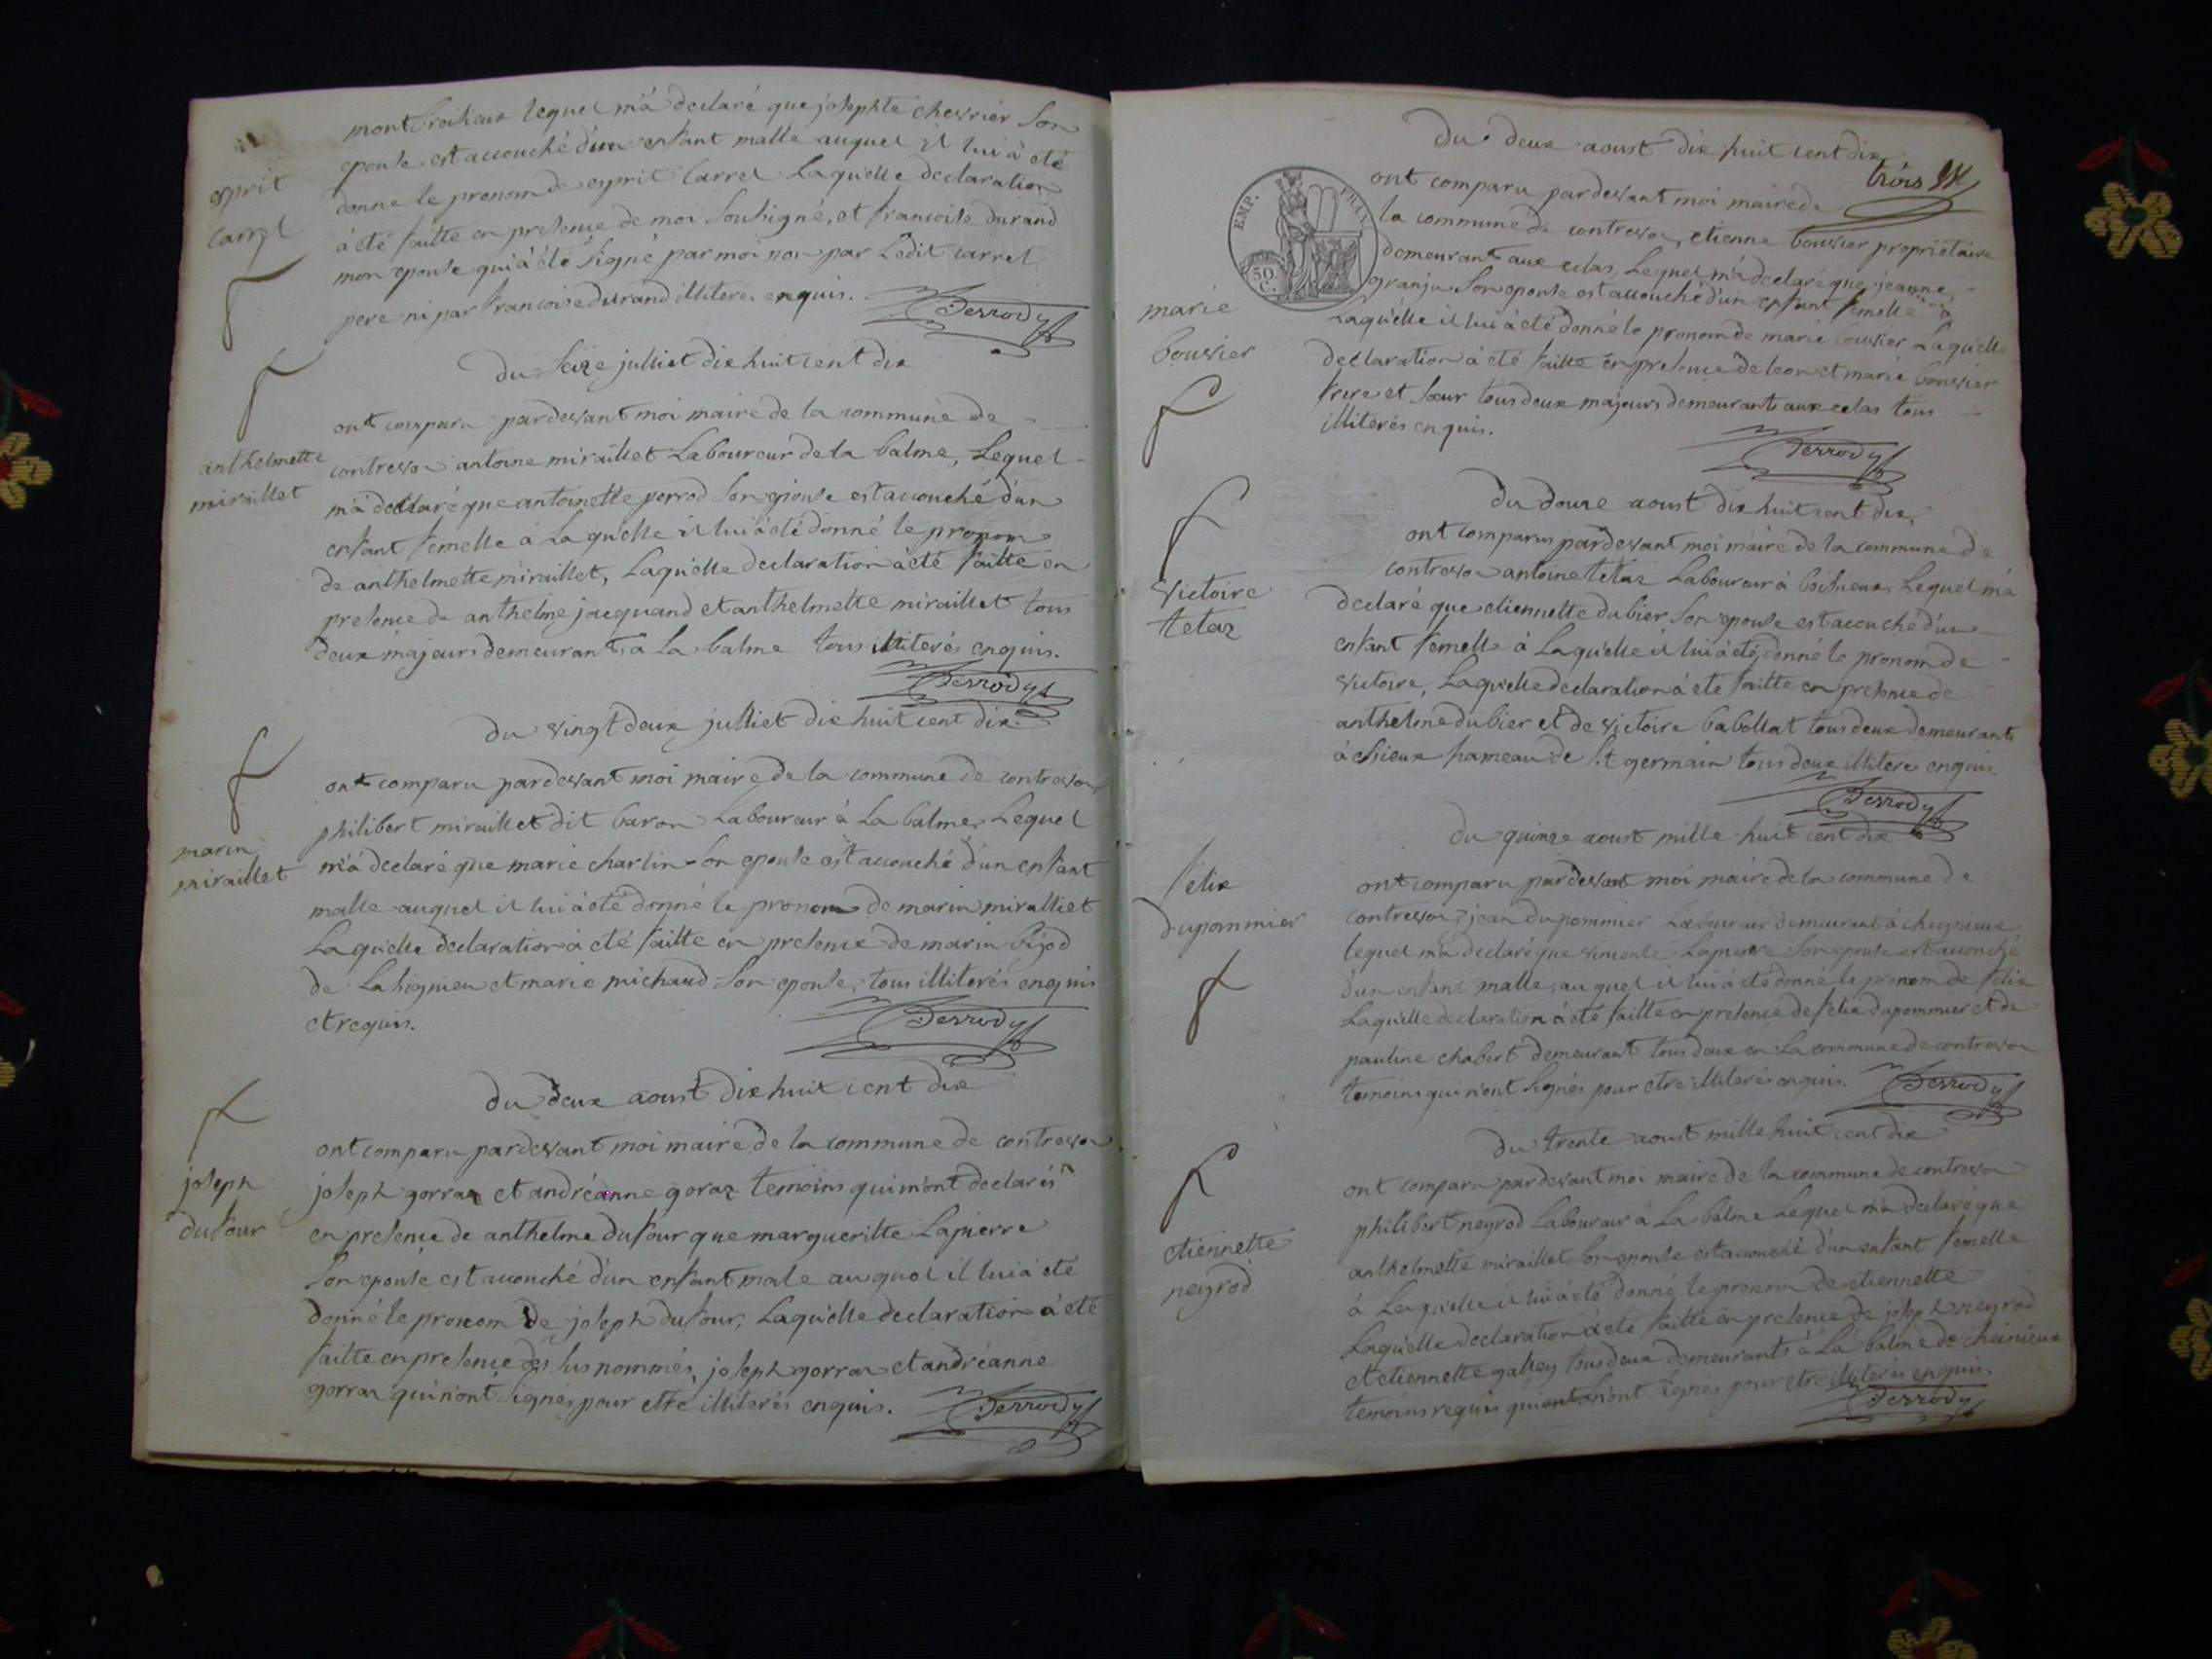 esprit
carrel
montbreisieux lequel m'a declaré que josephte chevrier son
epouse est accouché d'un enfant malle auquel il lui a été
donne le pronom de esprit Carrel Laquelle declaration
à été faitte en presence de moi soussigné, et francoise durand
mon epouse qui à été signé par moi non par Ledit carrel
pere ni par francoise durand illiteré. enquis.
Derrody
du seize julliet dix huit cent dix
anthelmette
miraillet
ont comparu pardevant moi maire de la commune de
contrevoz antoine miraillet Laboureur de la balme, Lequel
m'à declaré que antoinette perrod son epouse est accouché d'un
enfant femelle à Laquelle il lui à été donné le pronom
de anthelmette miraillet, Laquelle declaration à été faitte en
presence de anthelme jacquand et anthelmette miraillet tous
deux majeurs demeurant à La balme tous illiterés enquis.
Derrody
du vingt deux julliet dix huit cent dix.
marin
miraillet
ont comparu pardevant moi maire de la commune de contrevoz
philibert miraillet dit baron Laboureur à La balme, Lequel
m'à declaré que marie charlin son epouse est accouché d'un enfant
malle auquel il lui à été donné le pronom de marin miralliet
Laquelle declaration à été faitte en presence de marin bijod
de Lasignieu et marie michaud son epouse, tous illiterés enquis
et requis.
Derrody
du deux aoust dix huit cent dix
joseph
dufour
ont comparu pardevant moi maire de la commune de contrevoz
joseph gorraz et andréanne goraz temoins qui m'ont declarés
en presence de anthelme dufour que margueritte Lapierre
son epouse est accouché d'un enfant male auquel il lui à été
donné le pronom de joseph dufour, Laquelle declaration à été
faitte en presence des sus nommés, joseph gorraz et andréanne
gorraz qui n'ont signés pour etre illiterés enquis.
Derrody
du deux aoust dix huit cent dix
trois
EMP. FRAN.
50 C.
marie
bouvier
ont comparu pardevant moi maire de
la commune de contrevoz, etienne bouvier propriétaire
demeurant aux celas, Lequel m'à declaré que jeanne
granju son epouse est accouché d'un enfant femelle à
Laquelle il lui à été donné le pronom de marie bouvier Laquelle
declaration à été faitte en presence de leon et marie bouvier
frere et sœur tous deux majeurs demeurants aux celas tous
illiterés enquis.
Derrody
du douze aoust dix huit cent dix.
victoire
tetaz
ont comparus pardevant moi maire de la commune de
contrevoz antoine tetaz Laboureur à boissieux, Lequel m'à
declaré que etiennette dubier son epouse est acouché d'un
enfant femelle à Laquelle il lui à été donné le pronom de
victoire, Laquelle declaration à été faitte en presence de
anthelme dubier et de victoire babollat tous deux demeurants
à essieux hameau de St germain tous deux illiteré enquis.
Derrody
du quinze aoust mille huit cent dix
felix
dupommier
ont comparu pardevant moi maire de la commune de
contrevoz jean dupommier Laboureur demeurant à cheignieux
lequel m'à declaré que vincente Lapierre son epouse est accouché
d'un enfant malle, auquel il lui à été donné le pronom de felix
Laquelle declaration à été faitte en presence de felix dupommier et de
pauline chabert demeurant tous deux en La commune de contrevoz
temoins qui n'ont signés pour etre illiterés enquis.
Derrody
du trente aoust mille huit cent dix
etiennette
neyrod
ont comparu pardevant moi maire de la commune de contrevoz
philibert neyrod Laboureur à La balme Lequel m'à declaré que
anthelmette miraillet son epouse est accouché d'un enfant femelle
à Laquelle il lui à été donné le pronom de etiennette
Laquelle declaration à été faitte en presence de joseph neyrod
et etiennette galley tous deux demeurants à La balme de cheinieux
temoins requis qui n'ont signés pour etre illiterés enquis.
Derrody